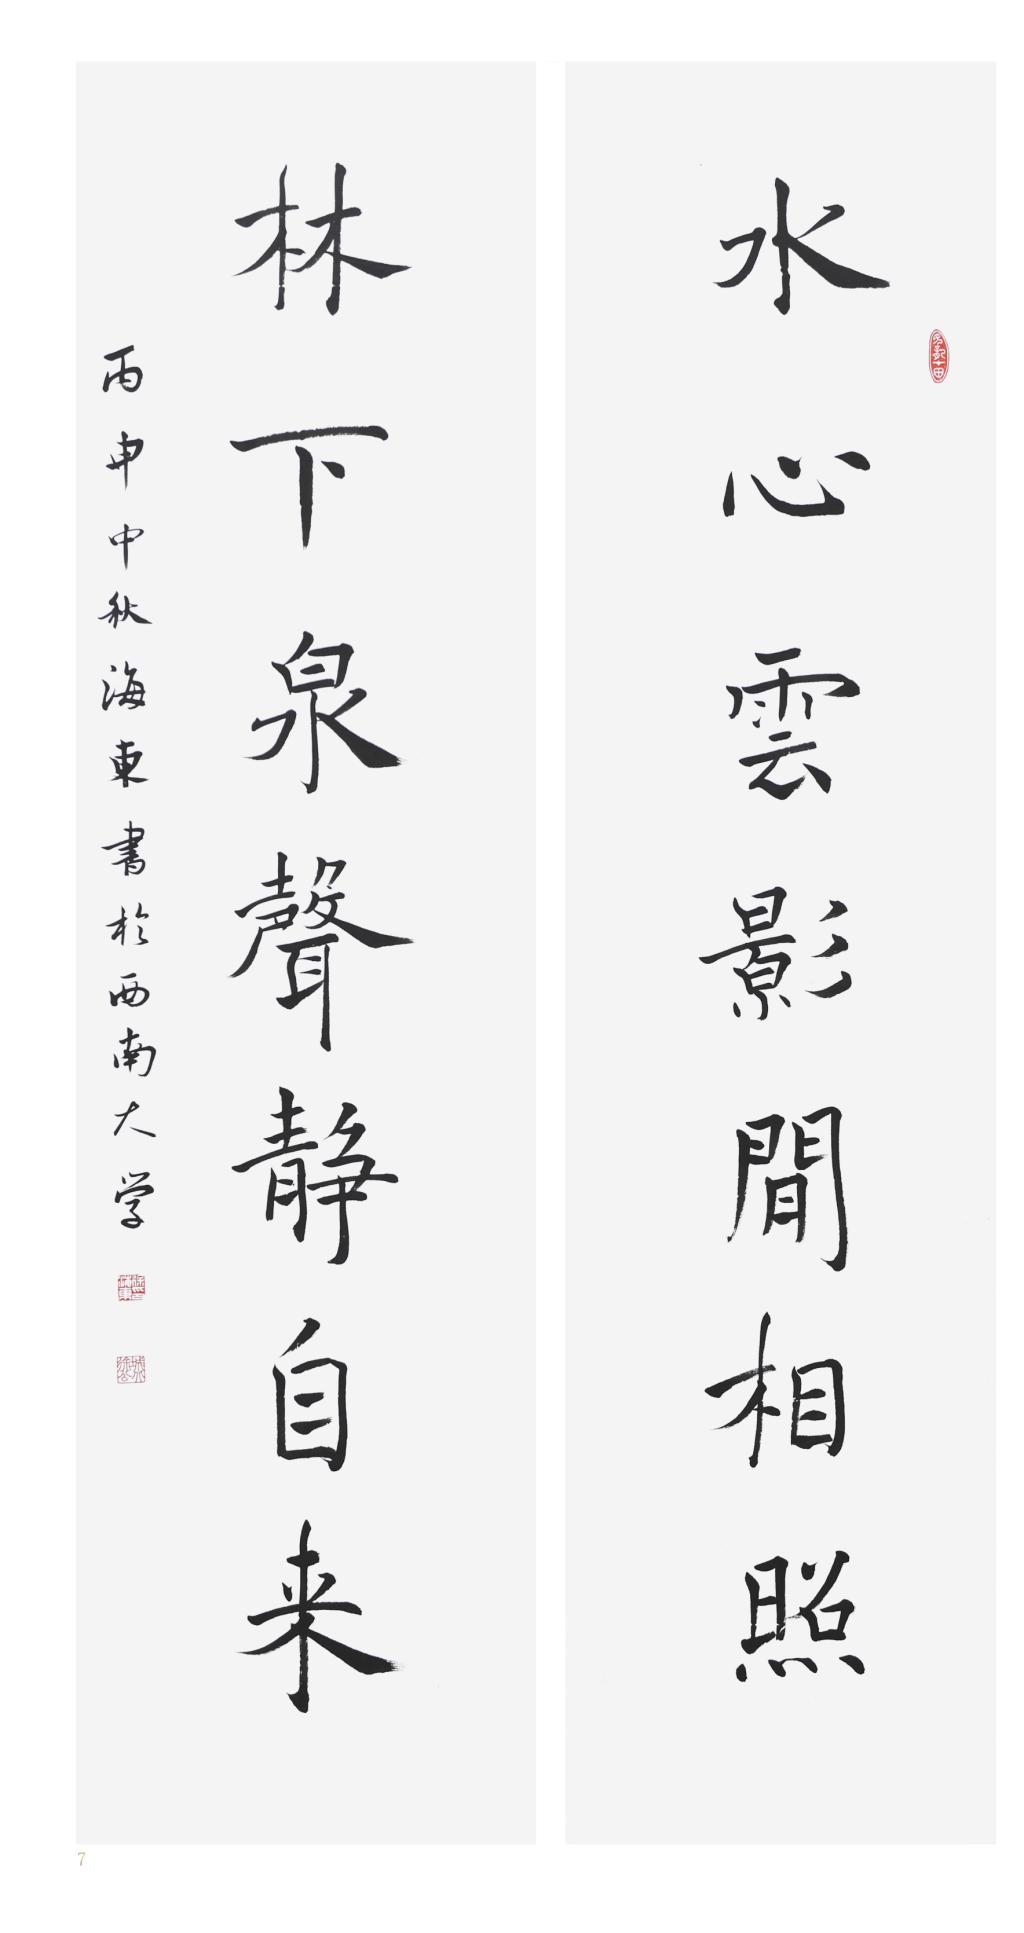 水心雲影閒相照
林下泉聲静自来
丙申中秋海東書於西南大学
7